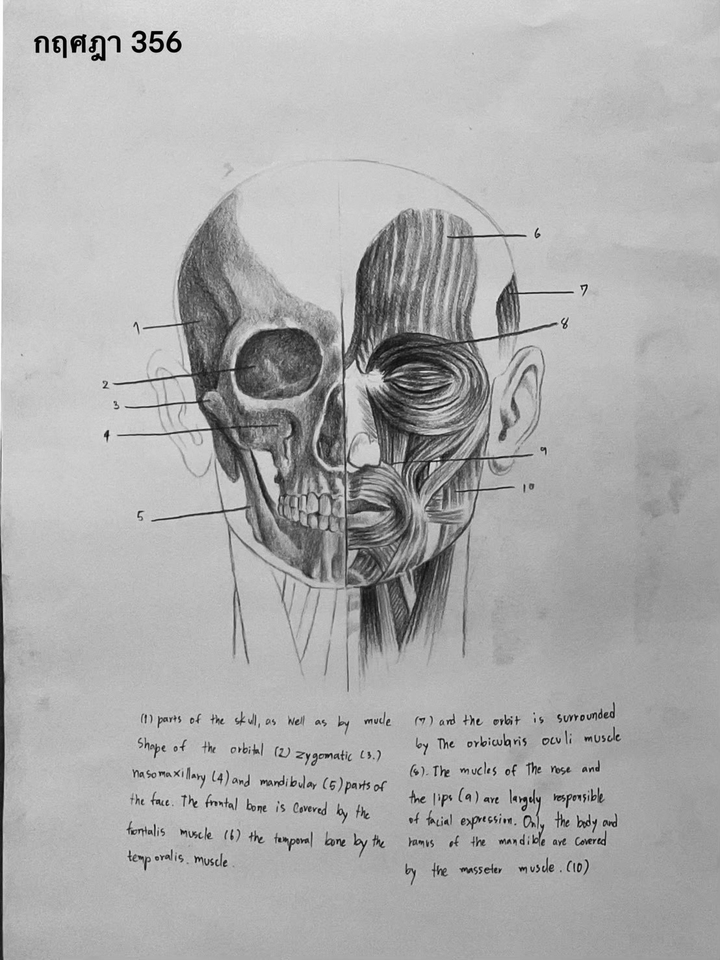 กฤศฎา 356
6
7
8
1
2
3
4
9
10
5
(1) parts of the skull, as well as by mucle
Shape of the orbital (2) zygomatic (3.)
nasomaxillary (4) and mandibular (5) parts of
the face. The frontal bone is covered by the
frontalis muscle (6) the temporal bone by the
temporalis. muscle.
(7) and the orbit is surrounded
by The orbicularis oculi muscle
(8). The mucles of The nose and
the lips (9) are largely responsible
of facial expression. Only the body and
ramus of the mandible are covered
by the masseter muscle. (10)